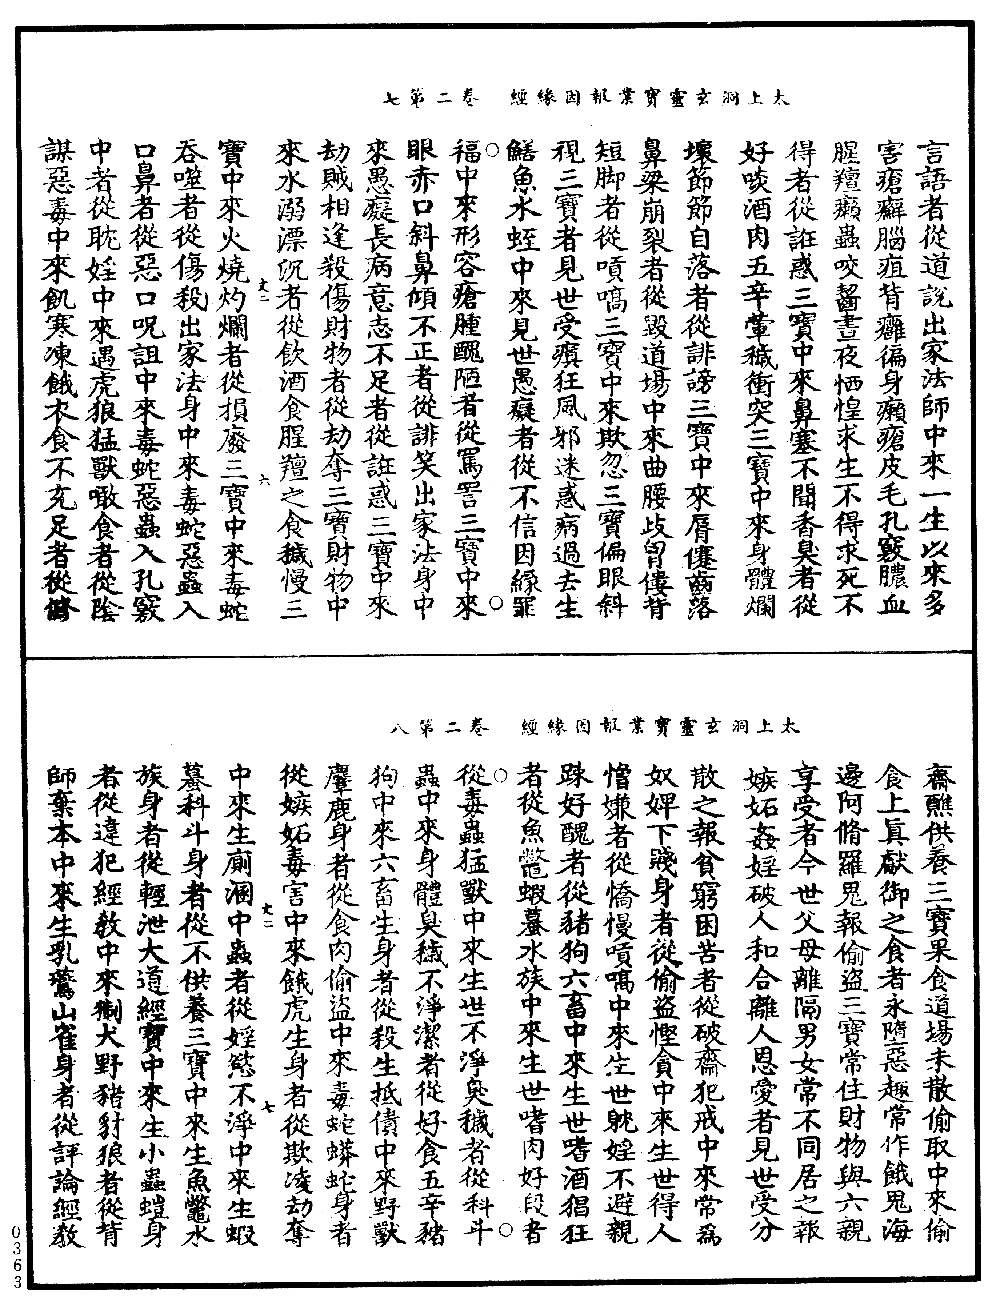 太上洞玄靈寶業報因緣經　卷二第七
言語者從道說出家法師中來一生以來多
害瘡癬腦疽背癰徧身癩瘡皮毛孔竅膿血
腥羶癩蟲咬齧晝夜恓惶求生不得求死不
得者從誑惑三寶中來鼻塞不聞香臭者從
好啖酒肉五辛葷穢衝突三寶中來身體爛
壞節節自落者從誹謗三寶中來脣僊齒落
鼻梁崩裂者從毀道場中來曲腰歧胷僂背
短脚者從嗔嗃三寶中來欺忽三寶偏眼斜
視三寶者見世受癲狂風邪迷惑病過去生
鱔魚水蛭中來見世愚癡者從不信因緣罪
福中來形容瘡腫醜陋者從罵詈三寶中來
眼赤口斜鼻傾不正者從誹笑出家法身中
來愚癡長病意志不足者從誑惑三寶中來
劫賊相逢殺傷財物者從劫奪三寶財物中
來水溺漂沉者從飲酒食腥羶之食穢慢三
寶中來火燒灼爛者從損廢三寶中來毒蛇
吞噬者從傷殺出家法身中來毒蛇惡蟲入
口鼻者從惡口呪詛中來毒蛇惡蟲入孔竅
中者從耽婬中來遇虎狼猛獸噉食者從陰
謀惡毒中來飢寒凍餓衣食不充足者從偷
太上洞玄靈寶業報因緣經　卷二第八
齋醮供養三寶果食道場未散偷取中來偷
食上眞獻御之食者永墮惡趣常作餓鬼海
邊阿脩羅鬼報偷盜三寶常住財物與六親
享受者今世父母離隔男女常不同居之報
嫉妬姦婬破人和合離人恩愛者見世受分
散之報貧窮困苦者從破齋犯戒中來常爲
奴婢下賤身者從偷盜慳貪中來生世得人
憎嫌者從憍慢嗔嗃中來生世躭婬不避親
踈好醜者從豬狗六畜中來生世嗜酒猖狂
者從魚鼈黿蝦蟇水族中來生世嗜肉好段者
從毒蟲猛獸中來生世不淨臭穢者從科斗
蟲中來身體臭穢不淨潔者從好食五辛豬
狗中來六畜生身者從殺生抵債中來野獸
麞鹿身者從食肉偷盜中來毒蛇蟒蛇身者
從嫉妬毒害中來餓虎生身者從欺凌劫奪
中來生廁溷中蟲者從婬慾不淨中來生蝦
蟇科斗身者從不供養三寶中來生魚鼈水
族身者從輕泄大道經寶中來生小蟲螘身
者從違犯經教中來猘犬野豬豺狼者從背
師棄本中來生乳鷰山雀身者從評論經教
丈二　六
丈二　七
0363